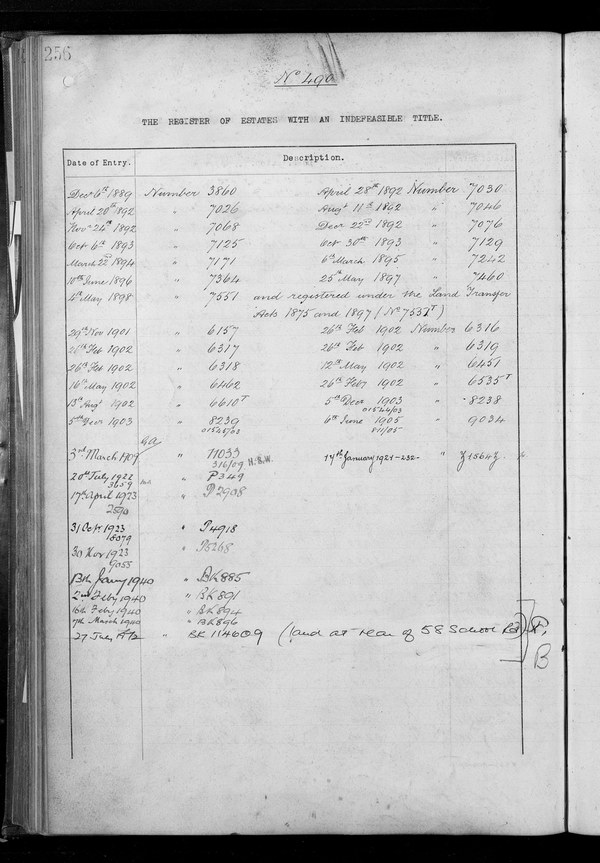 256
No 490
THE REGISTER OF ESTATES WITH AN INDEFEASIBLE TITLE.
Date of Entry. Description.
Decr 6th 1889 Number 3860 April 28th 1892 Number 7030
April 20th 1892 " 7026 Augt 11th 1862 " 7046
Novr 24th 1892 " 7068 Decr 22nd 1892 " 7076
Oct 6th 1893 " 7125 Oct 30th 1893 " 7129
March 22nd 1894 " 7171 6th March 1895 " 7242
10th June 1896 " 7364 25th May 1897 " 7460
4th May 1898 " 7551 and registered under the Land Transfer
Acts 1875 and 1897 (No 7551T)
29th Nov 1901 " 6157 26th Feb 1902 Number 6316
26th Feb 1902 " 6317 26th Feb 1902 " 6319
26th Feb 1902 " 6318 12th May 1902 " 6451
16th May 1902 " 6462 26th Feby 1902 " 6535T
13th Augt 1902 " 6610T 5th Decr 1903 " 8238
01544/03
5th Decr 1903 " 8239 6th June 1905 " 9034
01545/03 811/05
3rd March 1909 " 11033 14th January 1921-232- "
316/09 H.S.W.
20th July 1922 " P349
3659
17th April 1923 " P2908
2590
31 Oct 1923 " P4918
18079
30 Nov 1923 " P5268
9055
13th Jany 1940 " BK885
2nd Feby 1940 " BK891
16th Feby 1940 " BK894
7th March 1940 " BK896
27 July 1972 " BK 114609 (land at rear of 58 School Rd)
B